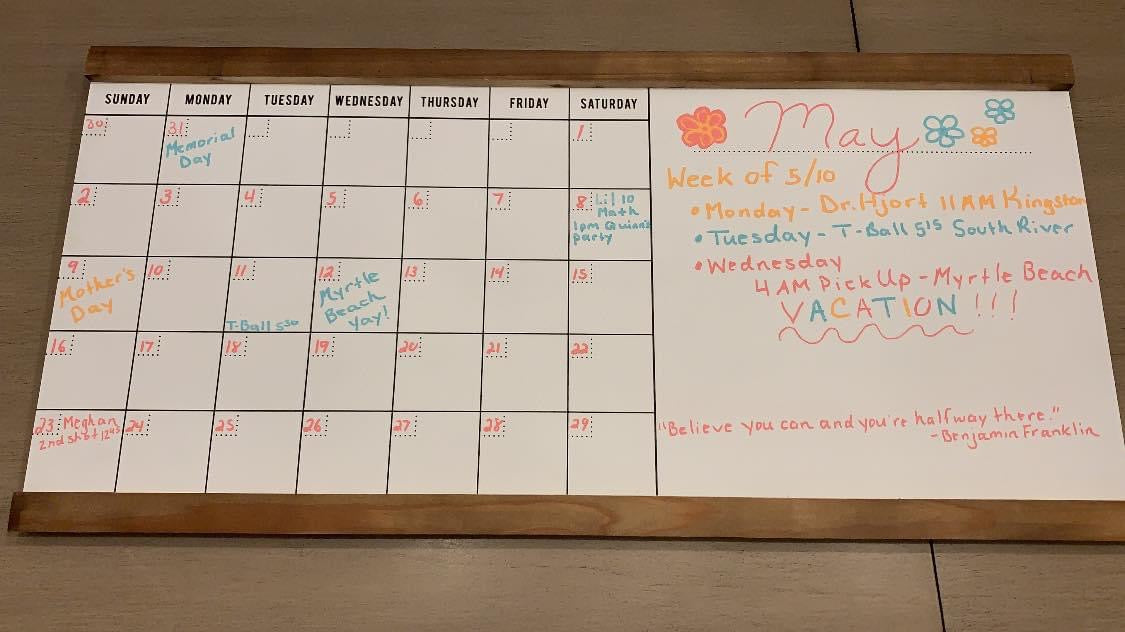 SUNDAY MONDAY TUESDAY WEDNESDAY THURSDAY FRIDAY SATURDAY
30 31 1
Memorial
Day
2 3 4 5 6 7 8 Lil 10
Math
1pm Quinn's
party
9 10 11 12 13 14 15
Mother's
Day
T-Ball 530
Myrtle
Beach
Yay!
16 17 18 19 20 21 22
23 Meghan 24 25 26 27 28 29
2nd shot 1245
May
Week of 5/10
• Monday - Dr. Hjort 11 AM Kingston
• Tuesday - T-Ball 515 South River
• Wednesday
4 AM Pick Up - Myrtle Beach
VACATION!!!
"Believe you can and you're halfway there."
- Benjamin Franklin